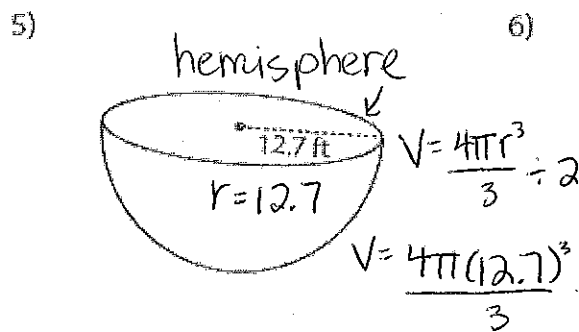 5) 6)
hemisphere
12.7 ft
r = 12.7
V = 4πr³/3 ÷ 2
V = 4π(12.7)³/3